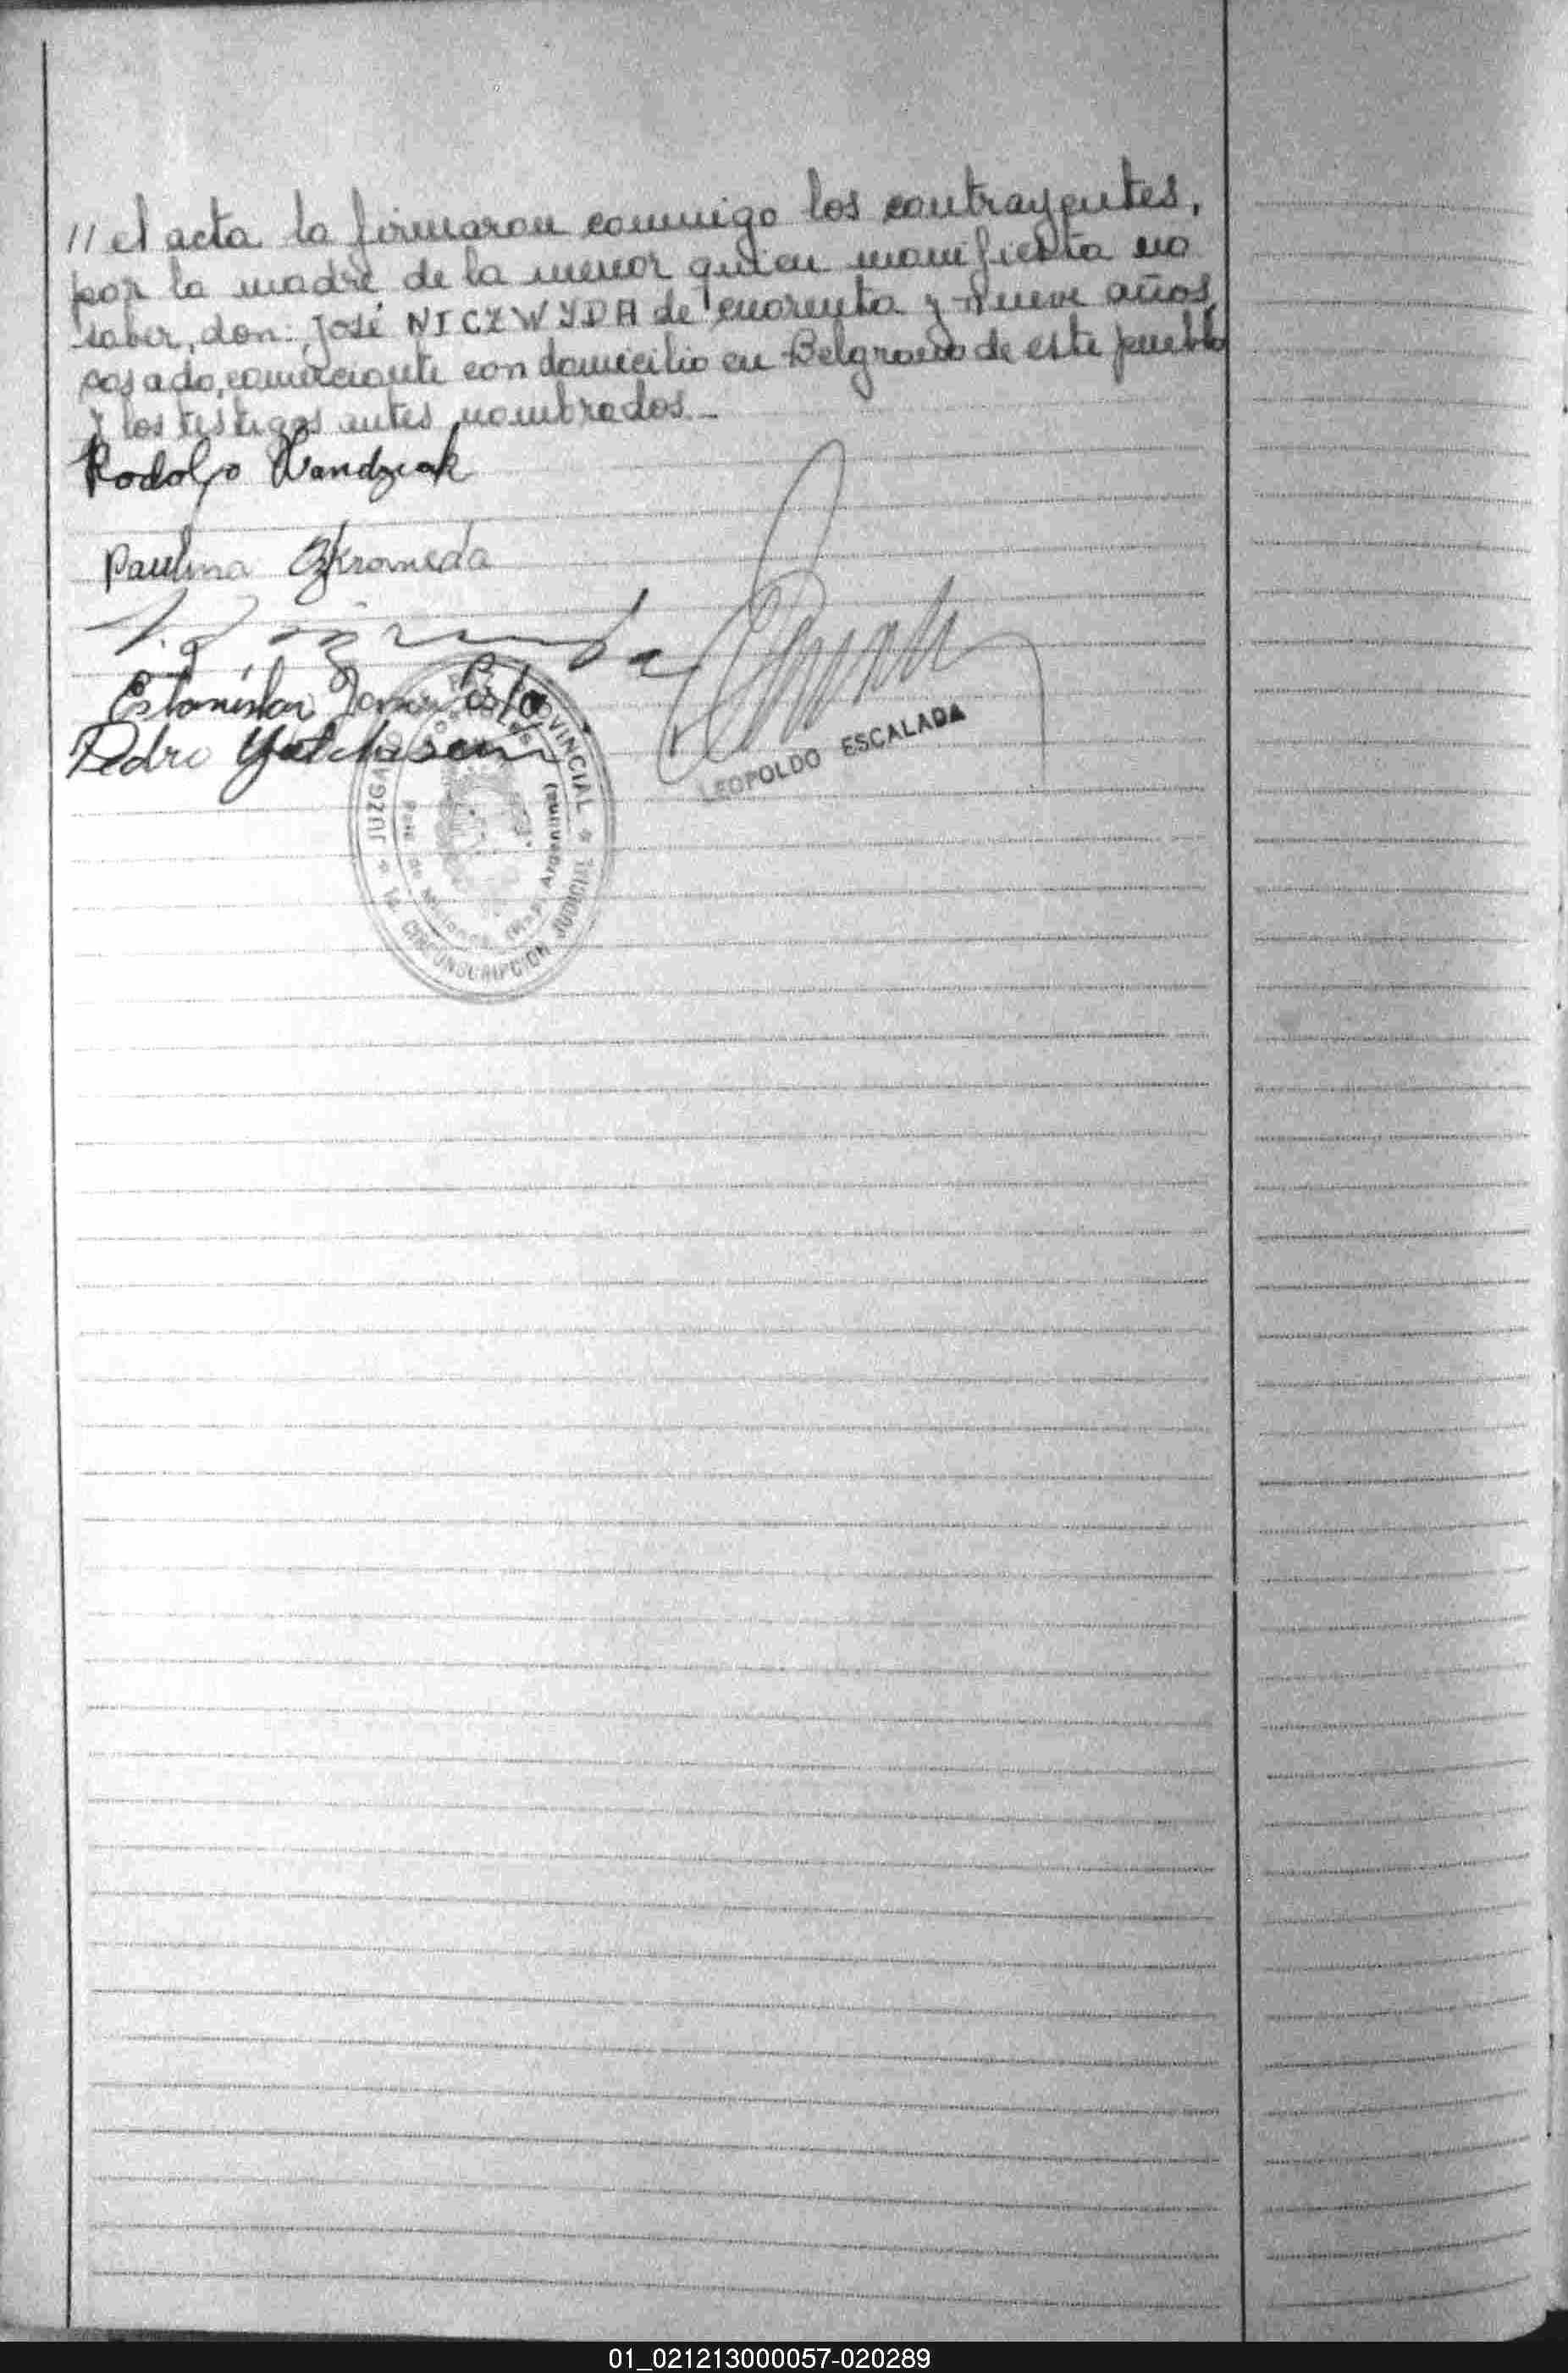 // el acta la firmaron conmigo los contrayentes,
por la madre de la menor quien manifiesta no
saber, don: José NICZWYDA de cuarenta y nueve años,
casado, comerciante con domicilio en Belgrano de este pueblo
y los testigos antes nombrados.-
Rodolfo Wandzeak
Paulina
Estanislao
Pedro
LEOPOLDO ESCALADA
JUZGADO PROVINCIAL * 1a. CIRCUNSCRIPCION JUDICIAL *
Pcia. de Misiones (Rep. Argentina)
01_021213000057-020289